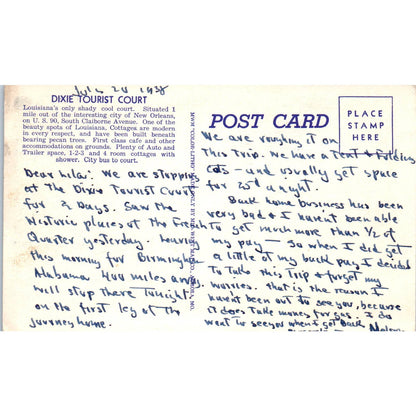 July 24 1938
DIXIE TOURIST COURT
Louisiana's only shady cool court. Situated 1
mile out of the interesting city of New Orleans,
on U. S. 90, South Claiborne Avenue. One of the
beauty spots of Louisiana. Cottages are modern
in every respect, and have been built beneath
bearing pecan trees. First class cafe and other
accommodations on grounds. Plenty of Auto and
Trailer space, 1-2-3 and 4 room cottages with
shower. City bus to court.
Dear Lila: We are stopping
at the Dixie Tourist Court
for 2 days. Saw the
Historic places of the French
Quarter yesterday. Leaving
this morning for Birmingham
Alabama 400 miles away.
Will stop there tonight
on the first leg of the
journey home.
POST CARD
PLACE
STAMP
HERE
We are roughing it on
This Trip. We have a Tent & Folding
Cots - and usually get space
for 25¢ a night.
Back home business has been
very bad & I haven't been able
To get much more than ½ of
my pay - so when I did get
a little of my back pay I decided
to Take this Trip & forget my
worries. that is the reason I
haven't been out to see you, because
it does take money for gas. I do
want to see you when I get back